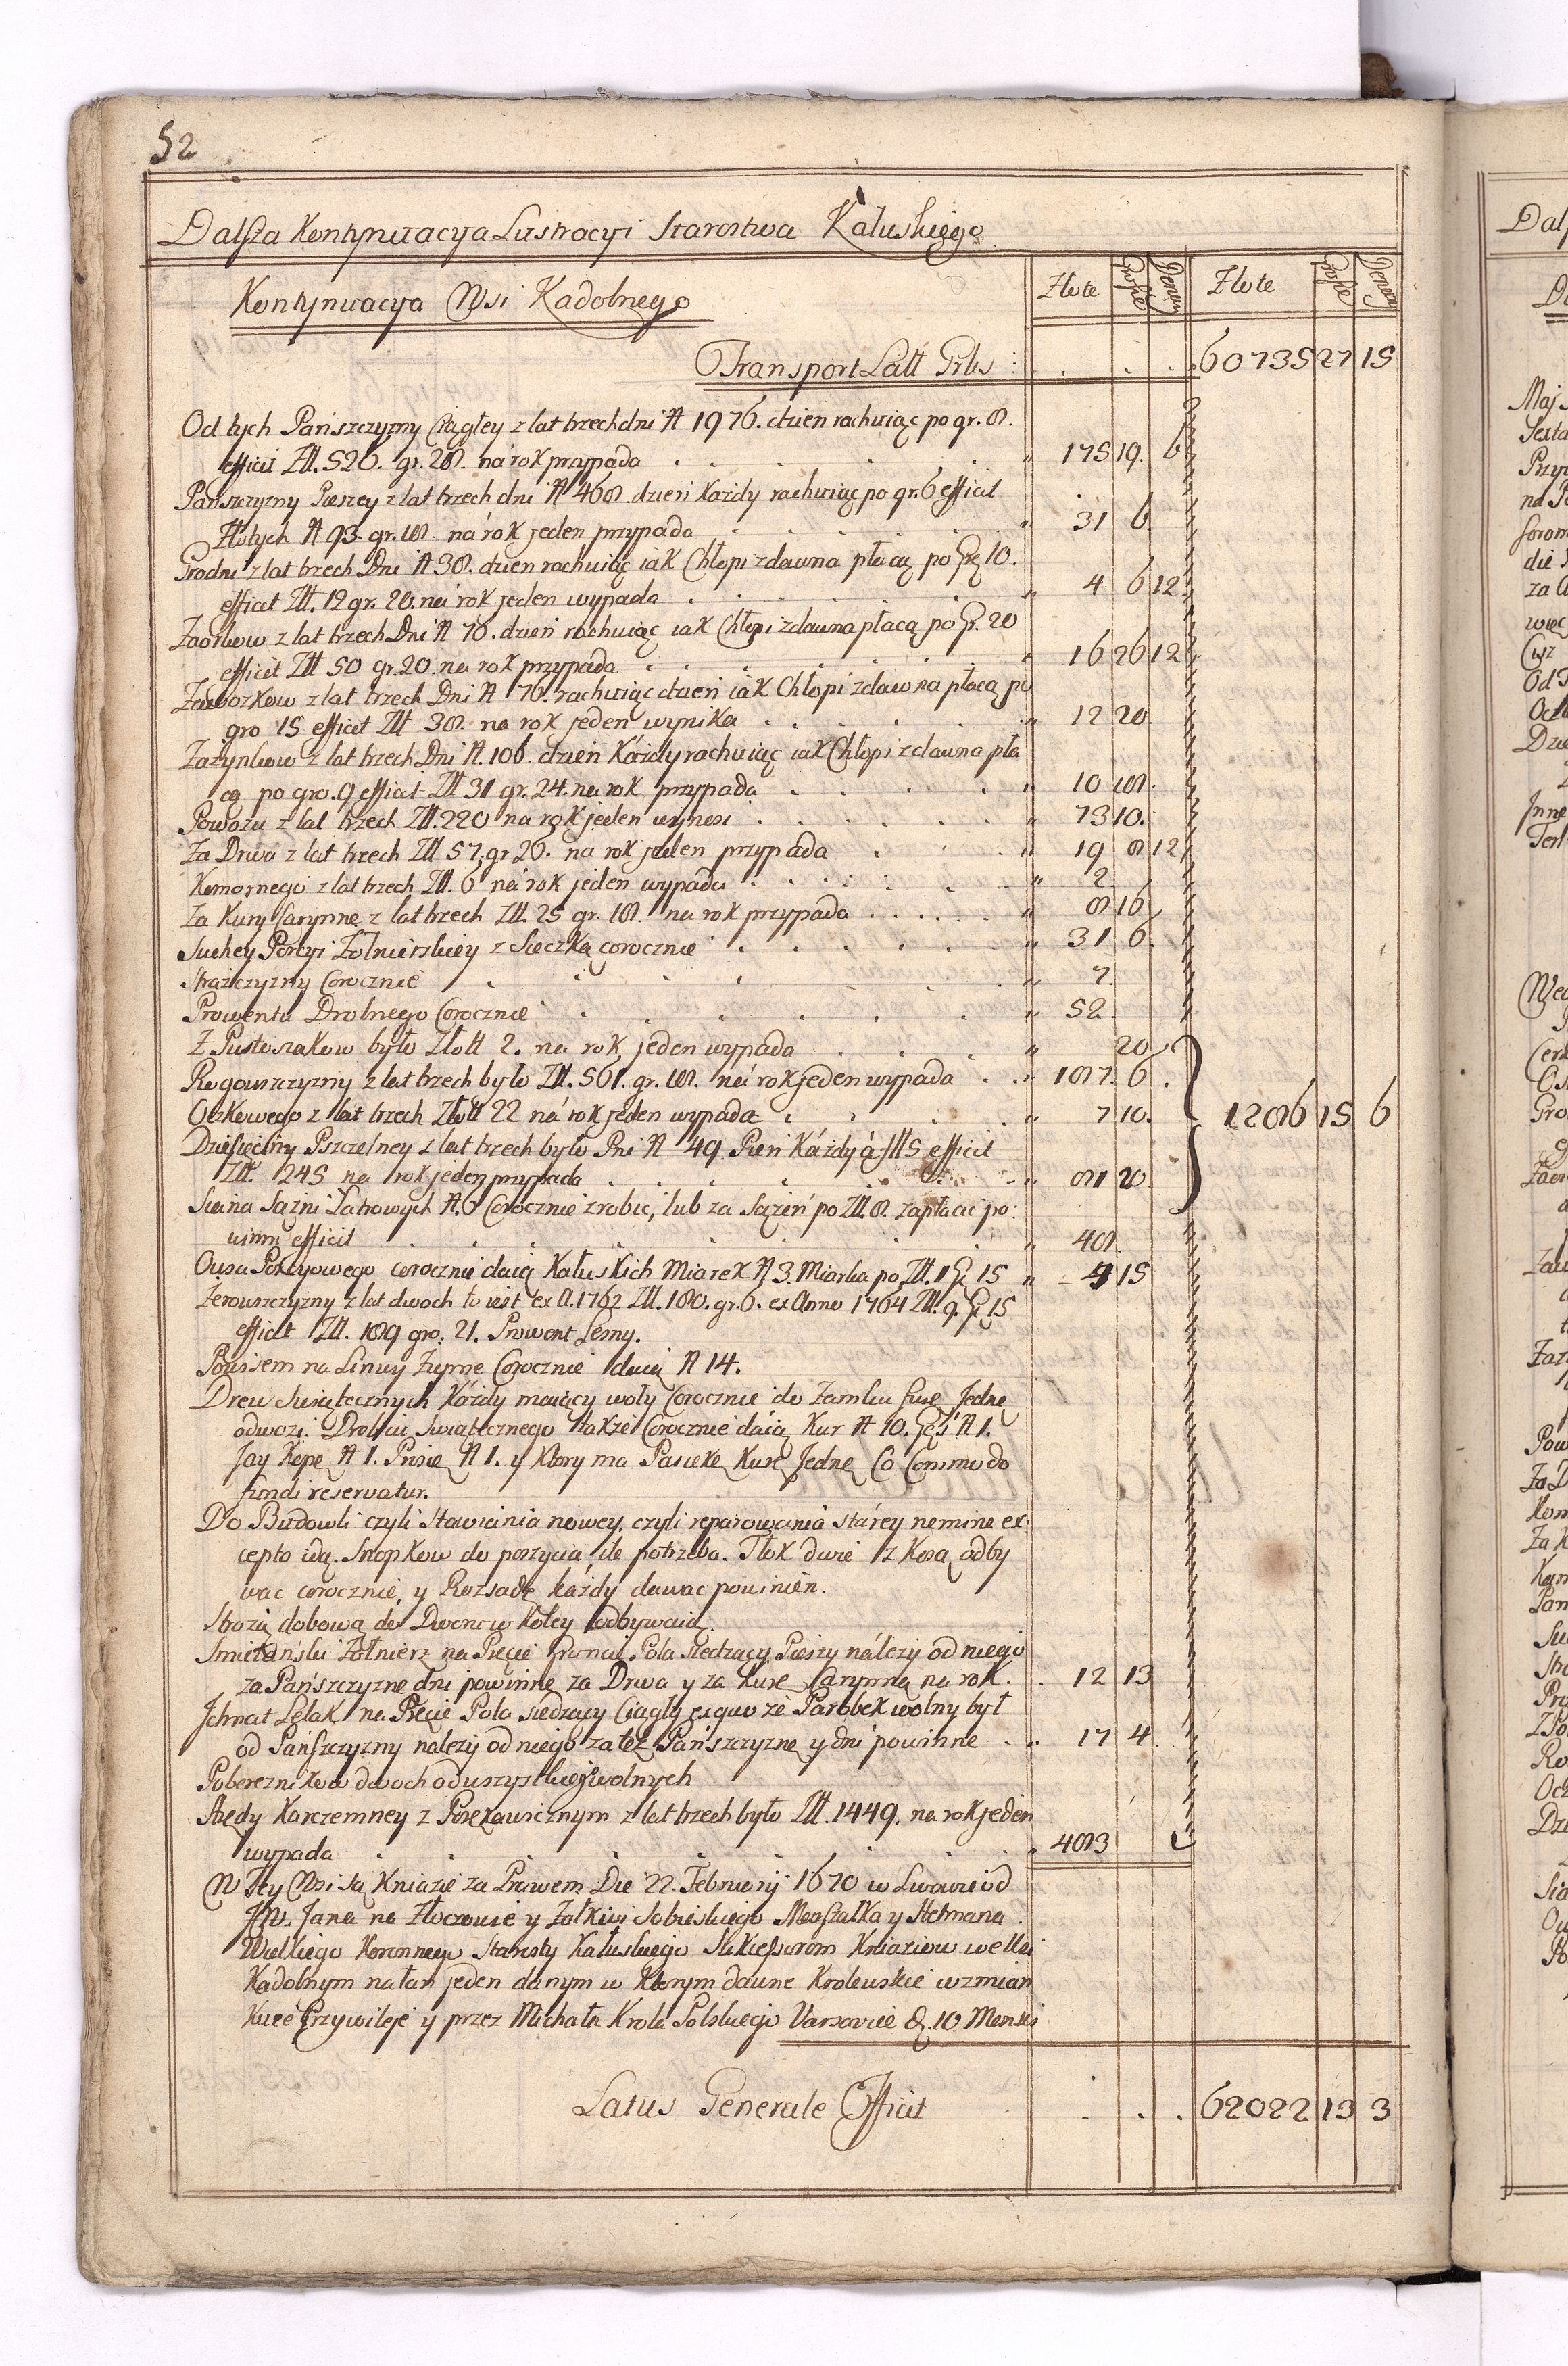 52
Dalsza Kontynuacya Lustracyi Starostwa Kałuskiego
Kontynuacya Wsi Kadolnego
Złote Grosze Denary Złote Grosze Denary
Transport Latt Prls: . . . 60735 27 15
Od tych Pańszczyzny Ciągłey z lat trzech dni N 1976. dzien rachuiąc po gr. 8.
efficit Złł. 526. gr. 28. na rok przypada . . . " 175 19. 6
Pańszczyzny Pieszey z lat trzech dni N 468. dzień każdy rachuiąc po gr. 6 efficit
Złotych N 93. gr. 18. na rok jeden przypada . . . " 31 6.
Grodni z lat trzech Dni N 38. dzien rachuiąc iak Chłopi zdawna płacą po Gr 10.
efficit Złł. 12 gr. 20. na rok jeden wypada . . . " 4 6 12.
Zaorkow z lat trzech Dni N 76. dzień rachuiąc iak Chłopi zdawna płacą po Gr. 20
efficit Złł 50 gr. 20. na rok przypada . . . " 16 26 12
Zawozkow z lat trzech Dni N 76. rachuiąc dzień iak Chłopi zdawna płacą po
gro 15 efficit Złł 38. na rok jeden wynika . . . " 12 20.
Zazynkow z lat trzech Dni N. 106. dzień Każdy rachuiąc iak Chłopi zdawna pła
cą po gro. 9 efficit Złł 31 gr. 24. na rok przypada . . . " 10 18.
Powozu z lat trzech Złł. 220 na rok jeden wynosi . . . " 73 10.
Za Drwa z lat trzech Złł 57, gr 26. na rok jeden przypada . . . " 19 8 12
Komornego z lat trzech Złł. 6 na rok jeden wypada . . . " 2
Za Kury Carynne z lat trzech Złł. 25 gr. 18. na rok przypada . . . " 8 16
Suchey Porcyi Zołnierskiey z Sieczką corocznie . . . " 31 6.
Strażczyzny Corocznie . . . " 7.
Prowentu Drobnego Corocznie . . . " 52.
Z Pustosakow było Złott 2. na rok jeden wypada . . . " 20
Rogowszczyzny z lat trzech było Złł. 561. gr. 18. na rok jeden wypada . . " 187. 6.
Oczkowego z lat trzech Złott 22 na rok jeden wypada . . . " 7 10. 1286 15 6
Dziesięciny Pszczelney z lat trzech było Pni N 49. Pień Każdy á złł 5 efficit
Złł. 245 na rok jeden przypada . . . " 81 20.
Siana Sążni Łatrowych N. 6 Corocznie zrobic, lub za Sążeń po Złł. 8. zapłacic po:
winni efficit . . . " 48.
Owsa Porcyowego corocznie daią Kałuskich Miarek N 3. Miarka po Złł. 1 Gr 15 " 4 15
Zerowszczyzny z lat dwoch to iest ex A. 1762 Złł. 180. gr. 6. ex Anno 1764 Złł. 9. Gr 15
efficit Złł. 189 gro. 21. Prowent Lesny.
Powisem na Linwy Zupne Corocznie daią N 14.
Drew Swiątecznych Każdy maiący woły Corocznie do Zamku furę Jednę
odwozi. Drobiu Swiątecznego także Corocznie daią Kur N 10. Gęś N 1.
Jay Kopę N 1. Prosię N 1. y ktory ma Pasiekę Kurę Jednę Co Commodo
fundi reservatur.
Do Budowli czyli Stawiania nowey, czyli reparowania stárey nemine ex:
cepto idą. Snopkow do poszycia, ile potrzeba. Tłok dwie z Kosą odby
wac corocznie, y Rozsadę każdy dawac powinien.
Strozą dobową do Dworu w koley odbywaią.
Smietański Zołnierz na Pręcie Gruncie Pola siedzący Pieszy náleży od niego
za Pańszczyznę dni powinne za Drwa y za kurę Carynną na rok . . 12 13
Jchnat Lelak na Pręcie Pola siedzący Ciągły ex quo że Parobek wolny był
od Pańszczyzny należy od niego za też Pańszczyznę y dni powinne . " 17 4.
Pobereznikow dwoch od wszystkiego wolnych
Rędy Karczemney z Porękawicznym z lat trzech było Złł. 1449. na rok jeden
wypada . . . " 483
W Tey Wsi są Kniazie za Prawem Die 22. Februarij 1670 w Lwowie od
JW. Jana na Złoczowie y Zołkwi Sobieskiego Marszałka y Hetmana
Wielkiego Koronnego Starosty Kałuskiego Sukcessorom Kniaziow we Wsi
Kadolnym na łan jeden danym w ktorym dawne Krolewskie wzmian
kuie Przywileje y przez Michała Krola Polskiego Varsaviae d. 10. Mensis
Latus Generale Efficit . . . 62022 13 3